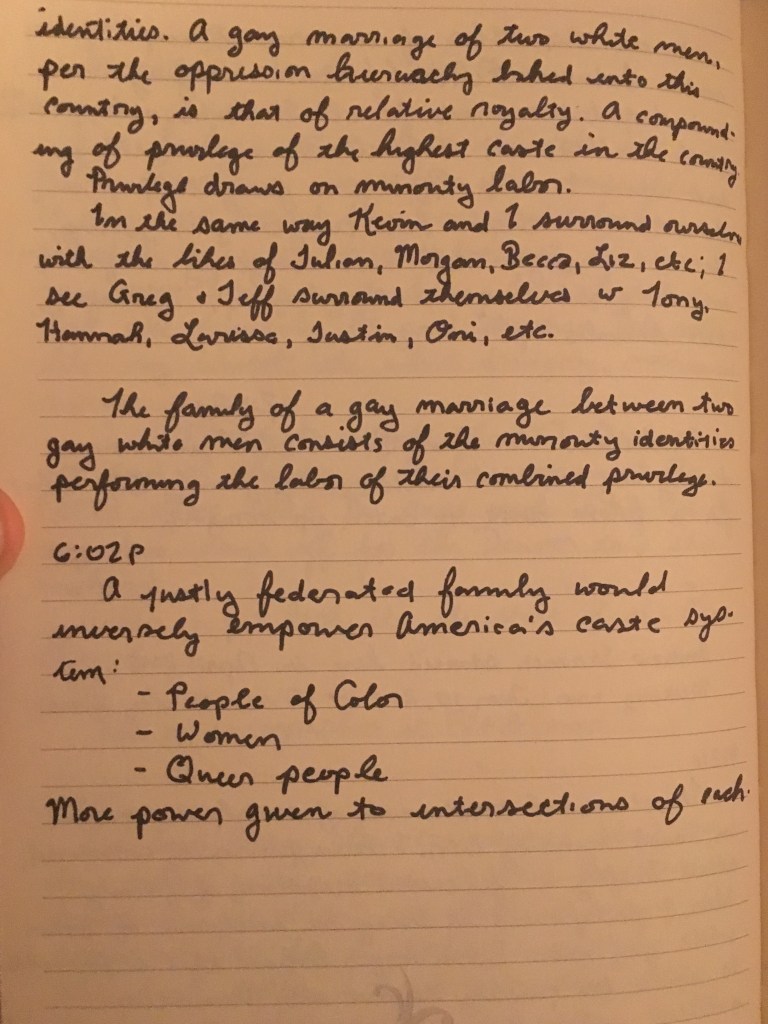 identities. A gay marriage of two white men,
per the oppression hierarchy baked into this
country, is that of relative royalty. A compound-
ing of privilege of the highest caste in the country
Privilege draws on minority labor.
In the same way Kevin and I surround ourselves
with the likes of Julian, Morgan, Becca, Liz, etc; I
see Greg & Jeff surround themselves w Tony,
Hannah, Larissa, Justin, Omi, etc.
The family of a gay marriage between two
gay white men consists of the minority identities
performing the labor of their combined privilege.
6:02P
A justly federated family would
inversely empower America's caste sys-
tem:
- People of Color
- Women
- Queer people
More power given to intersections of each.